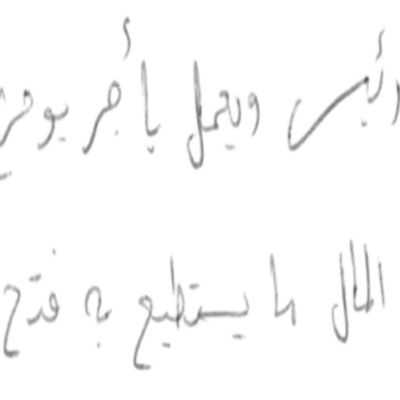 رئيس ويعمل بأجر يومي
المال ما يستطيع به فتح